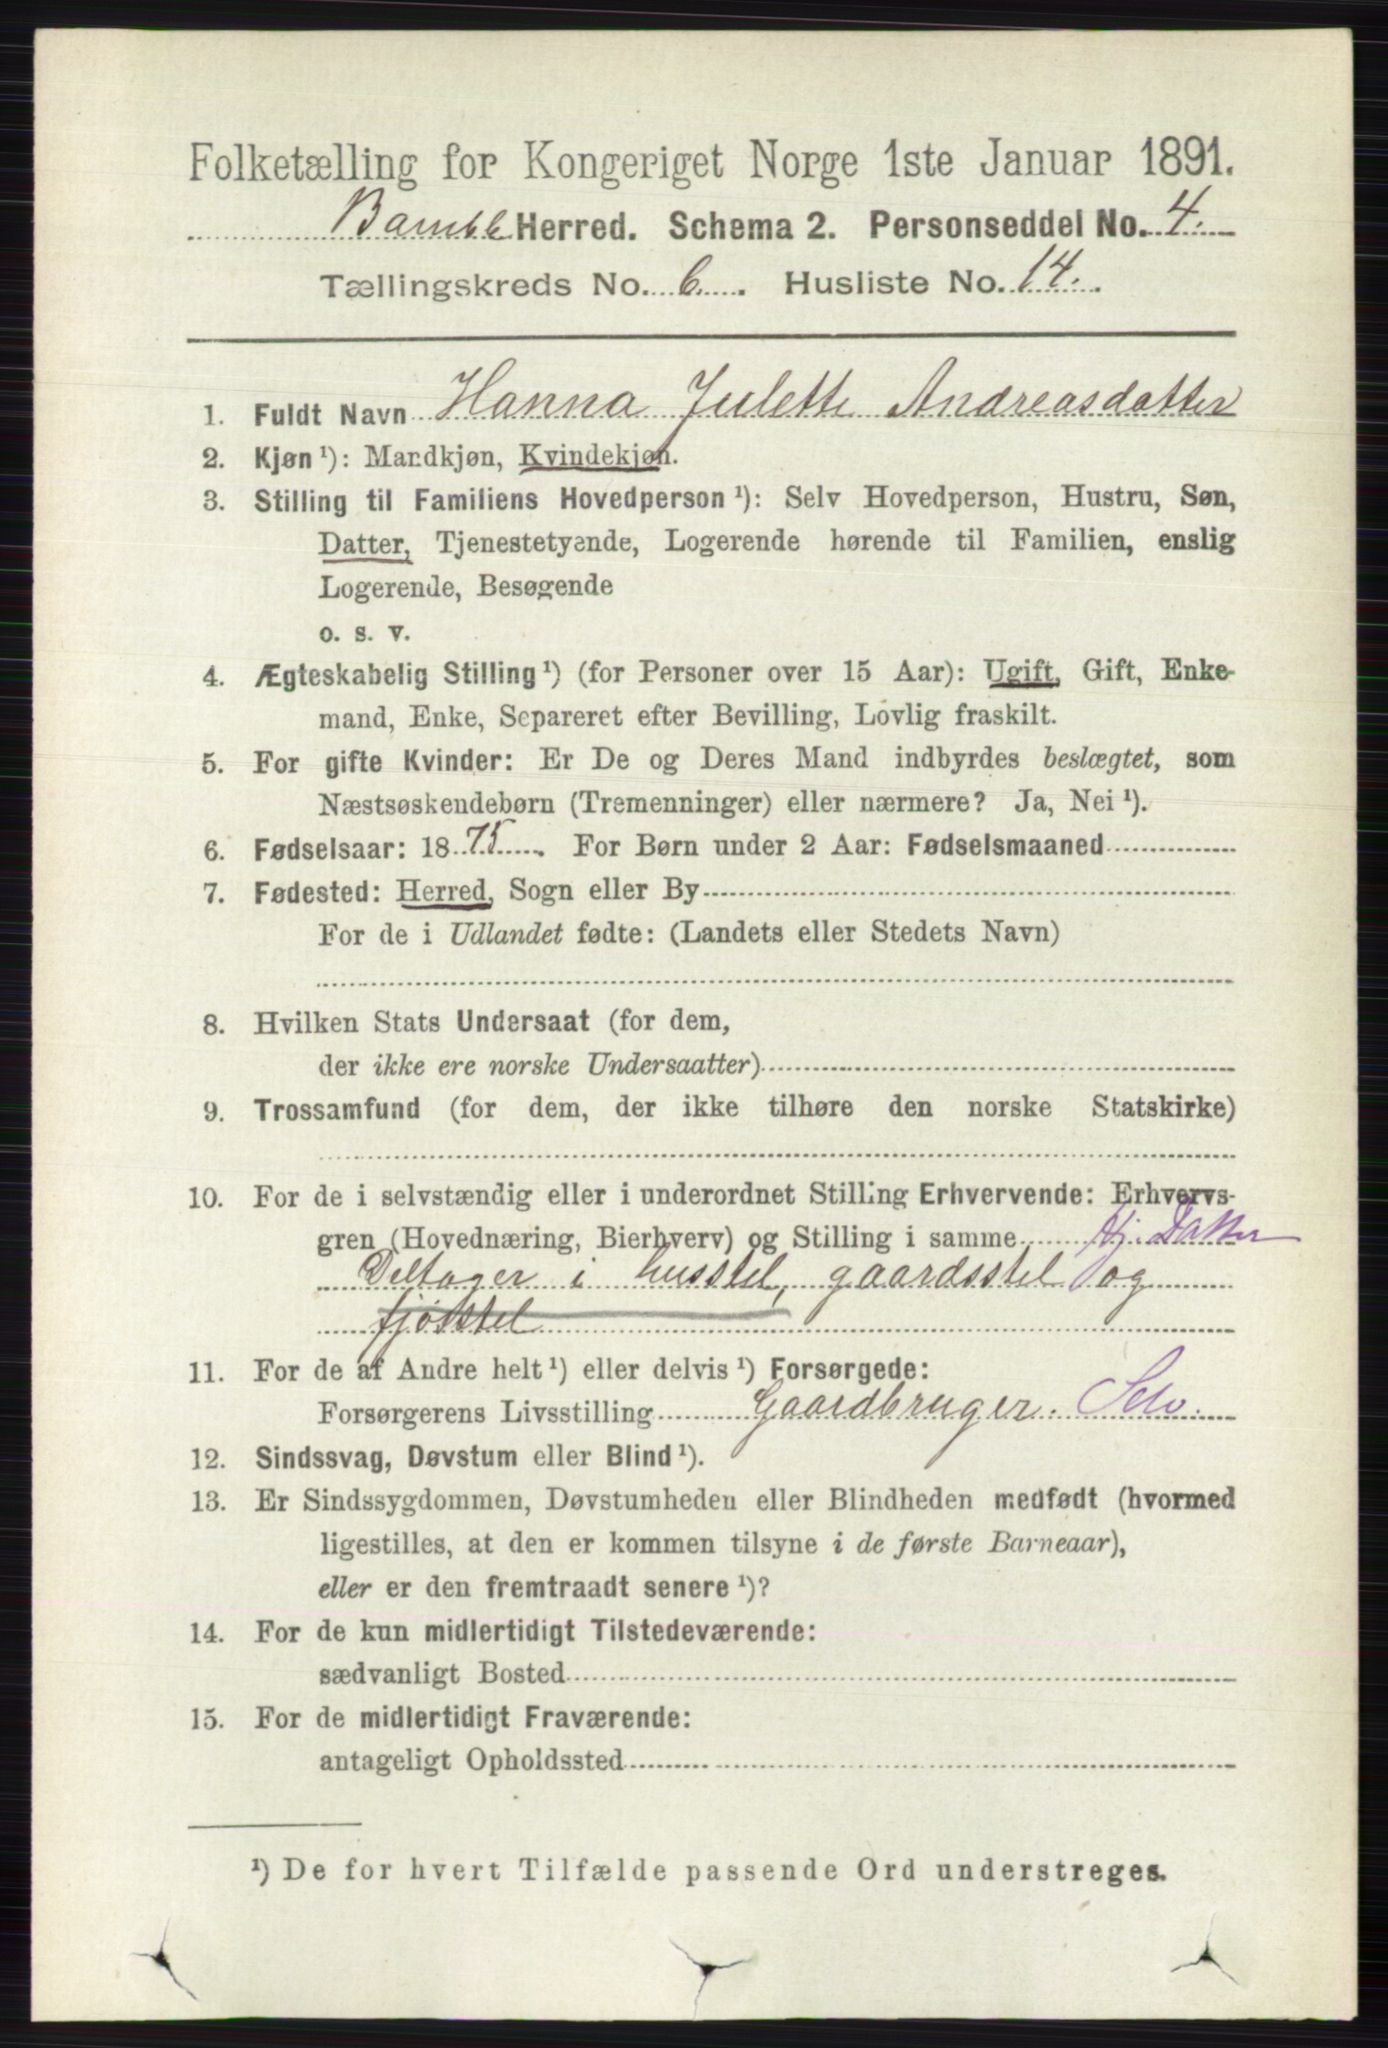 Folketælling for Kongeriget Norge 1ste Januar 1891.
Bamble Herred. Schema 2. Personseddel No. 4.
Tællingskreds No. 6. Husliste No. 14.
1. Fuldt Navn Hanna Julette Andreasdatter
2. Kjøn ¹): Mandkjøn, Kvindekjøn.
3. Stilling til Familiens Hovedperson ¹): Selv Hovedperson, Hustru, Søn,
Datter, Tjenestetyende, Logerende hørende til Familien, enslig
Logerende, Besøgende
o. s. v.
4. Ægteskabelig Stilling ¹) (for Personer over 15 Aar): Ugift, Gift, Enke-
mand, Enke, Separeret efter Bevilling, Lovlig fraskilt.
5. For gifte Kvinder: Er De og Deres Mand indbyrdes beslægtet, som
Næstsøskendebørn (Tremenninger) eller nærmere? Ja, Nei ¹).
6. Fødselsaar: 1875. For Børn under 2 Aar: Fødselsmaaned
7. Fødested: Herred, Sogn eller By
For de i Udlandet fødte: (Landets eller Stedets Navn)
8. Hvilken Stats Undersaat (for dem,
der ikke ere norske Undersaatter)
9. Trossamfund (for dem, der ikke tilhøre den norske Statskirke)
10. For de i selvstændig eller i underordnet Stilling Erhvervende: Erhvervs-
gren (Hovednæring, Bierhverv) og Stilling i samme Hj. Datter
Deltager i husstel, gaardsstel og
fjøsstel
11. For de af Andre helt ¹) eller delvis ¹) Forsørgede:
Forsørgerens Livsstilling Gaardbruger. Selv.
12. Sindssvag, Døvstum eller Blind ¹).
13. Er Sindssygdommen, Døvstumheden eller Blindheden medfødt (hvormed
ligestilles, at den er kommen tilsyne i de første Barneaar),
eller er den fremtraadt senere ¹)?
14. For de kun midlertidigt Tilstedeværende:
sædvanligt Bosted
15. For de midlertidigt Fraværende:
antageligt Opholdssted
¹) De for hvert Tilfælde passende Ord understreges.